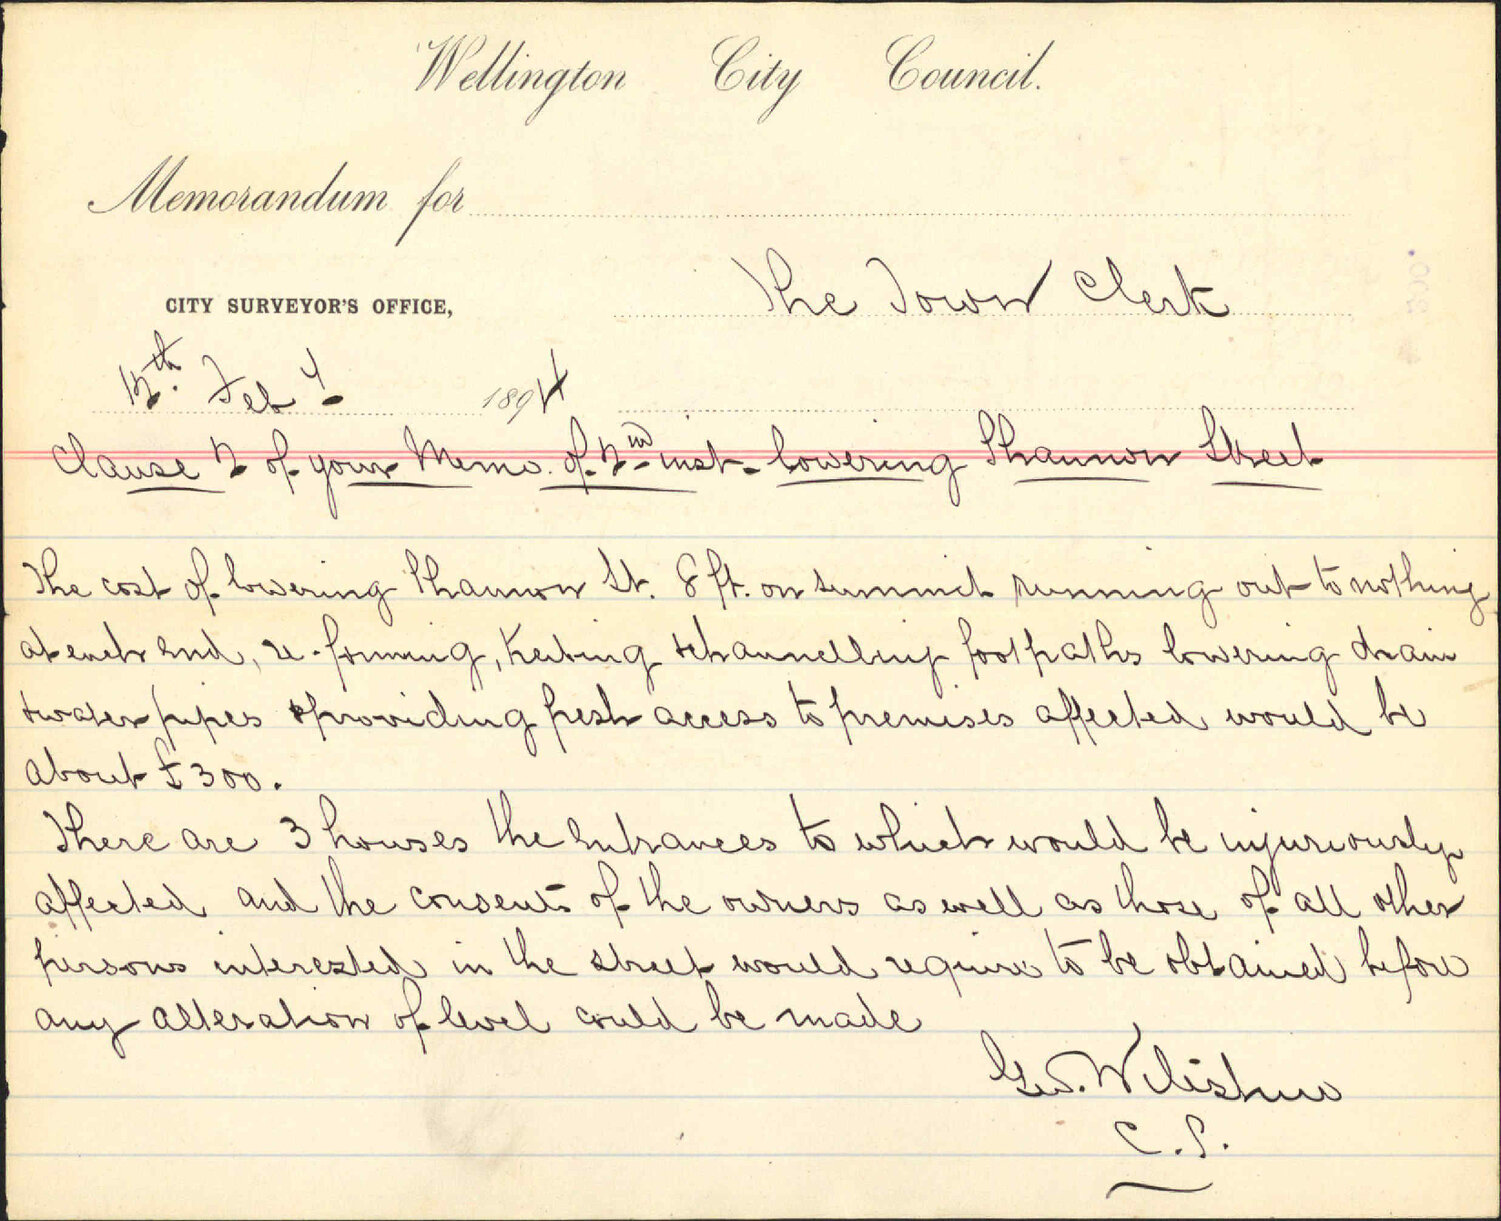 Wellington City Council.
Memorandum for
The Town Clerk
CITY SURVEYOR'S OFFICE,
12th. Feby 1894
Clause 2 of your Memo. of 2nd inst. lowering Shannon Street
The cost of lowering Shannon St. 8 ft. on summit running out to nothing
at each end, re-forming, Kerbing & channelling footpaths lowering drain
& water pipes & providing fresh access to premises affected would be
about £300.
There are 3 houses the entrances to which would be injuriously
affected and the consents of the owners as well as those of all other
persons interested in the street would require to be obtained before
any alteration of level could be made
Geo. Wiltshire
C.S.